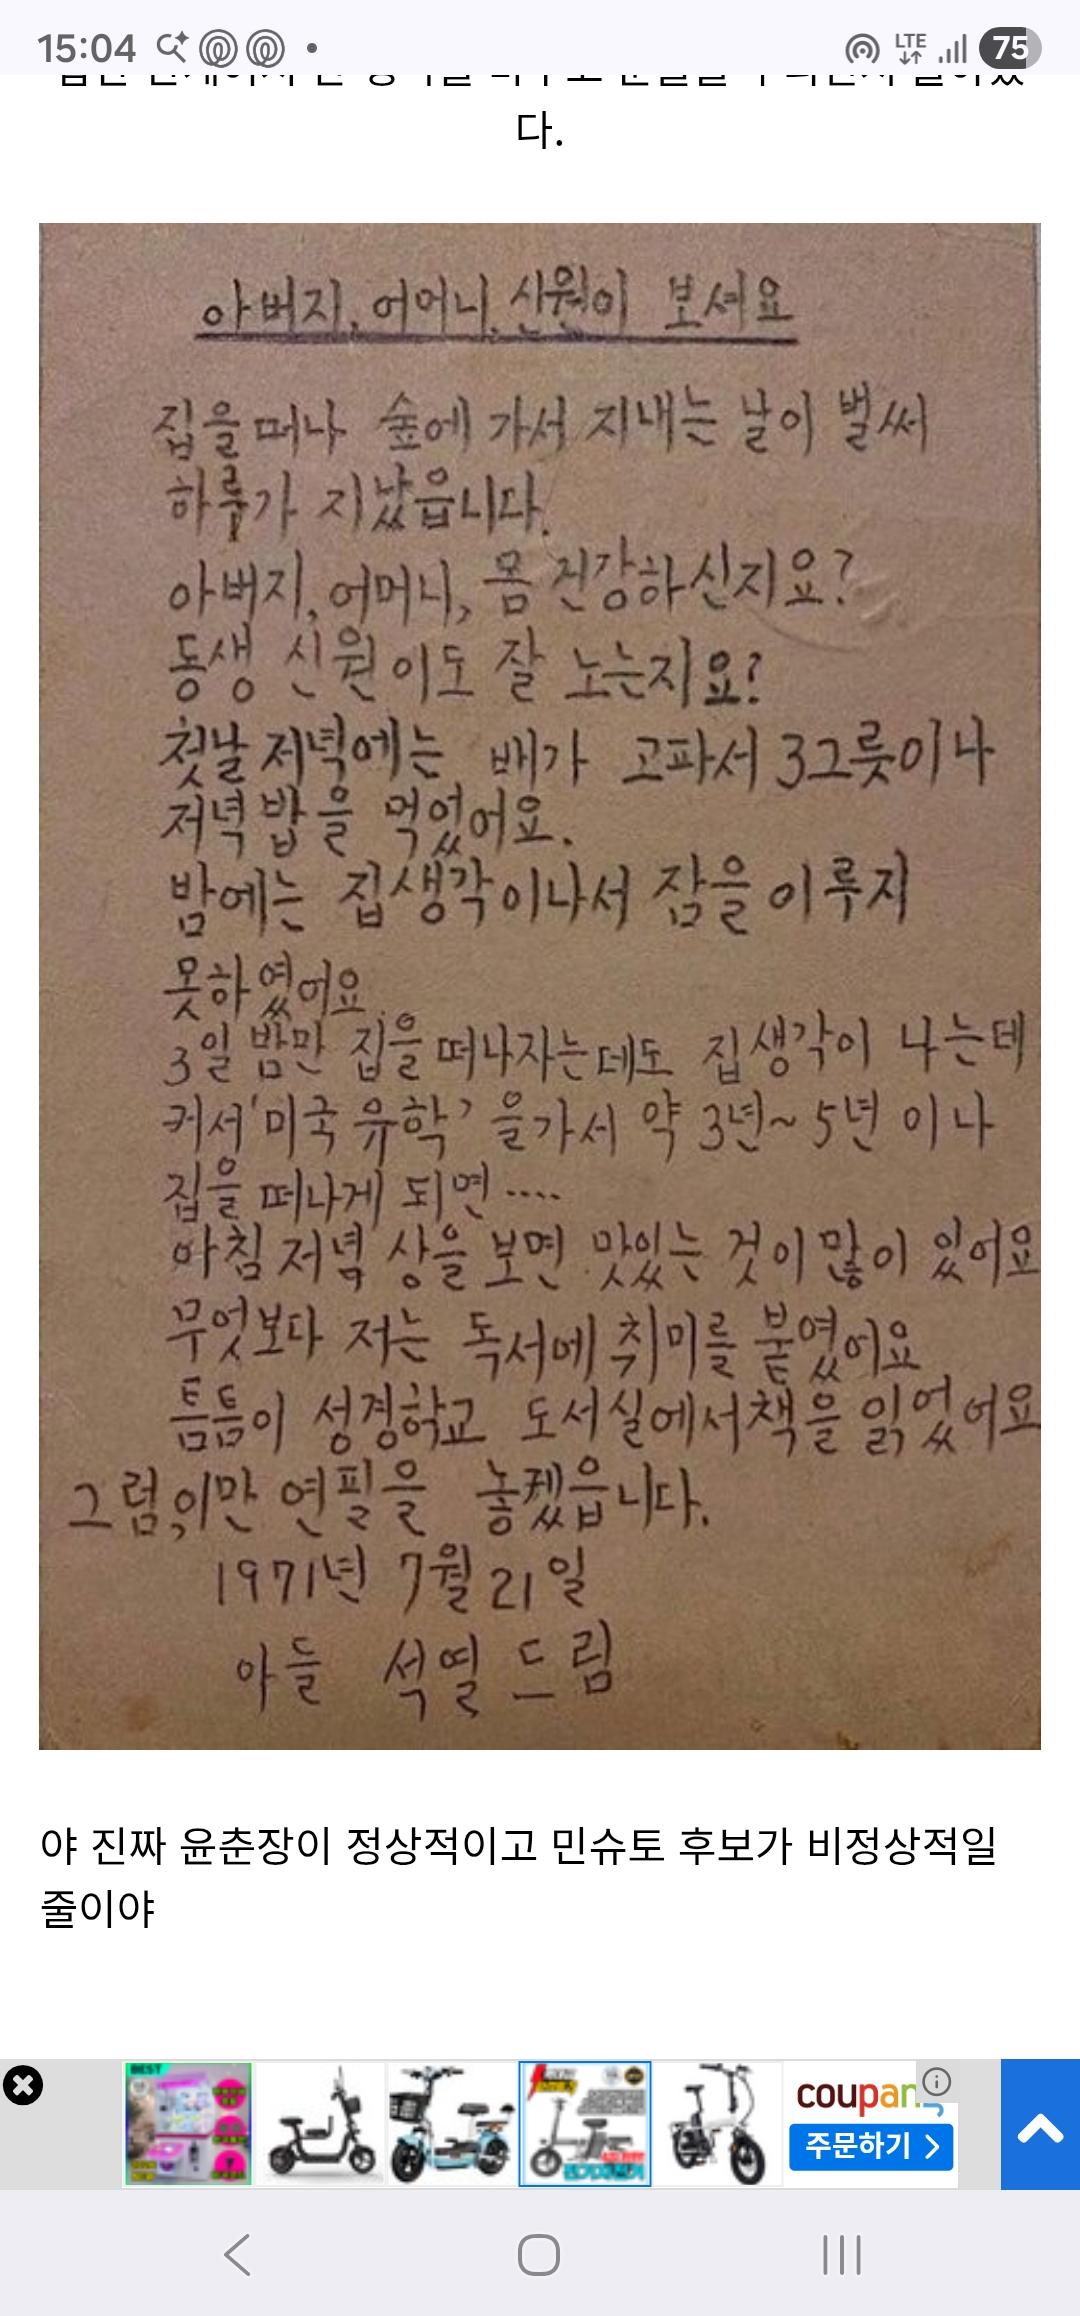 15:04
LTE
75
다.
아버지, 어머니, 신원이 보셔요
집을 떠나 숲에 가서 지내는 날이 벌써
하루가 지났읍니다.
아버지, 어머니, 몸 건강하신지요?
동생 신원이도 잘 노는지요?
첫날 저녁에는 배가 고파서 3그릇이나
저녁 밥을 먹었어요.
밤에는 집생각이나서 잠을 이루지
못하였어요
3일 밤만 집을 떠나자는데도 집생각이 나는데
커서 '미국 유학' 을가서 약 3년~5년 이나
집을 떠나게 되면····
아침 저녁 상을 보면 맛있는 것이 많이 있어요
무엇보다 저는 독서에 취미를 붙였어요
틈틈이 성경학교 도서실에서책을 읽었어요
그럼, 이만 연필을 놓겠읍니다.
1971년 7월 21일
아들 석열 드림
야 진짜 윤춘장이 정상적이고 민슈토 후보가 비정상적일
줄이야
BEST
coupang
주문하기 >